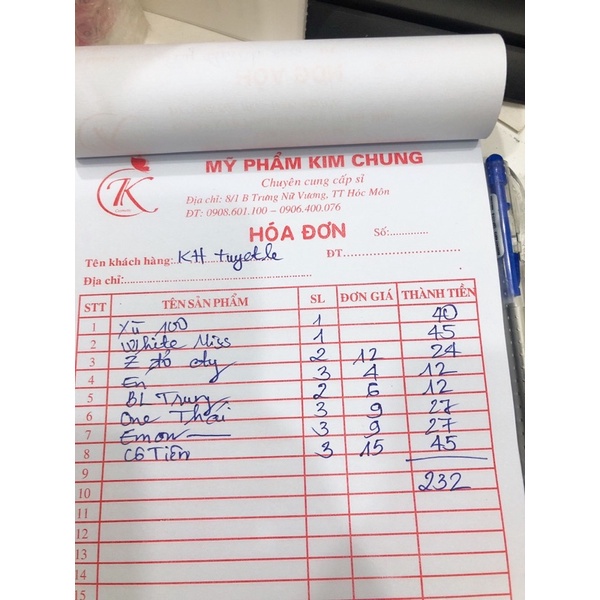 TK
MỸ PHẨM KIM CHUNG
Chuyên cung cấp sỉ
Địa chỉ: 8/1 B Trưng Nữ Vương, TT Hóc Môn
ĐT: 0908.601.100 – 0906.400.076
HÓA ĐƠN Số:.............
Tên khách hàng: KH tuyetle ĐT..............................
Địa chỉ:..................................................
STT TÊN SẢN PHẨM SL ĐƠN GIÁ THÀNH TIỀN
1 Xù 100 1 40
2 White Miss 1 45
3 đỏ 2 12 24
4 En 3 4 12
5 BL Trung 2 6 12
6 One Thái 3 9 27
7 Emon 3 9 27
8 Tiên 3 15 45
9
10 232
11
12
13
14
15